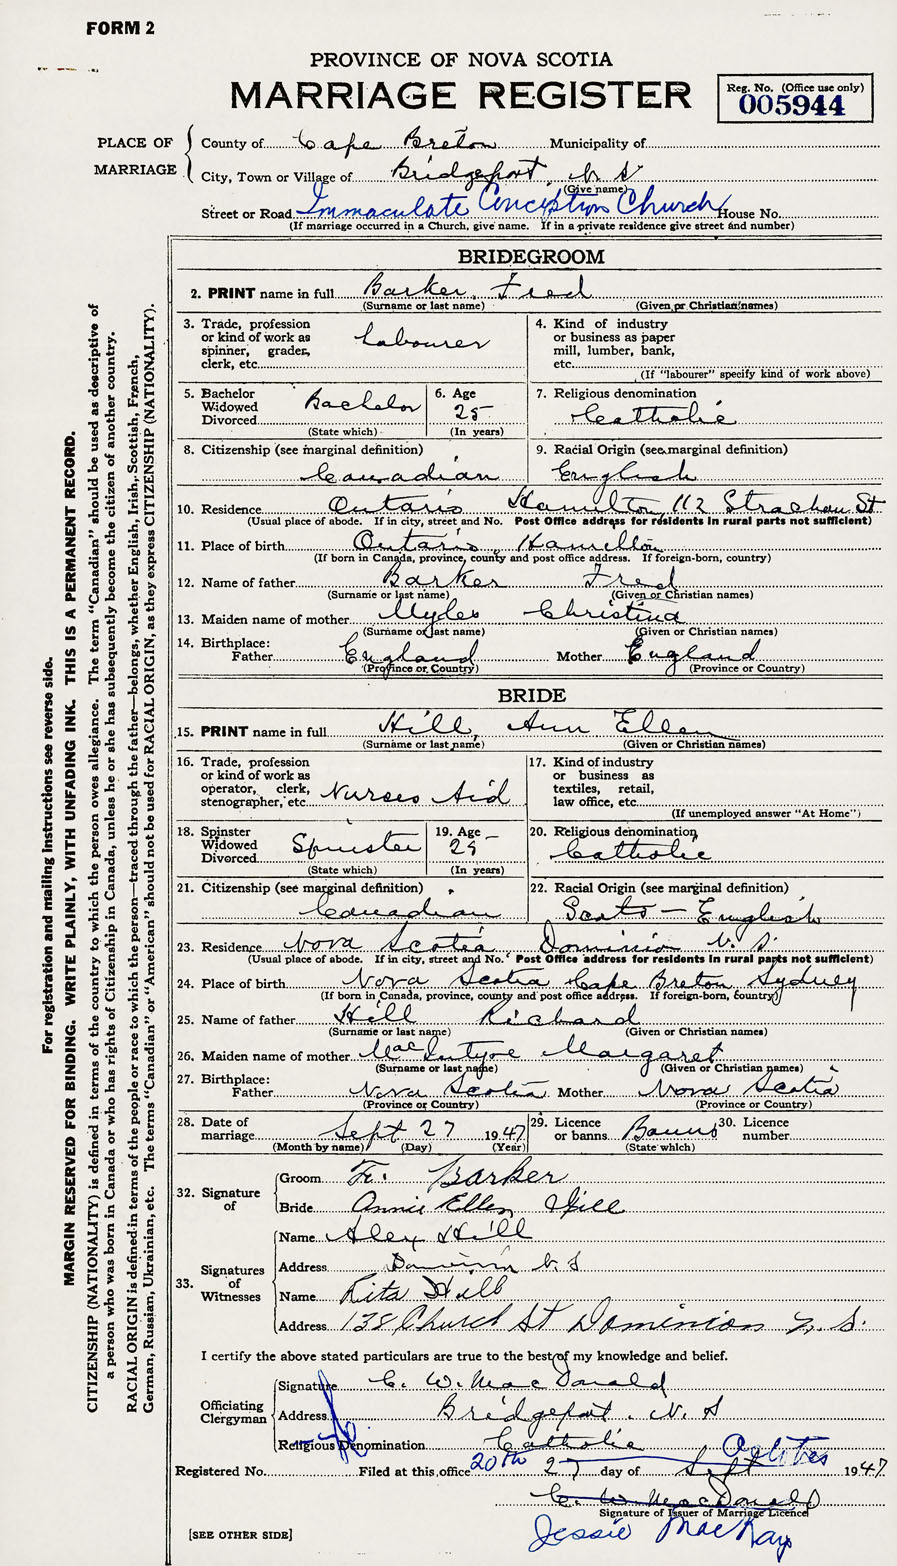 FORM 2
PROVINCE OF NOVA SCOTIA
MARRIAGE REGISTER
Reg. No. (Office use only)
005944
PLACE OF MARRIAGE
County of Cape Breton Municipality of
City, Town or Village of Bridgeport N S
(Give name)
Street or Road Immaculate Conception Church House No.
(If marriage occurred in a Church, give name. If in a private residence give street and number)
BRIDEGROOM
2. PRINT name in full Barker, Fred
(Surname or last name) (Given or Christian names)
3. Trade, profession or kind of work as spinner, grader, clerk, etc. Labourer
4. Kind of industry or business as paper mill, lumber, bank, etc.
(If "labourer" specify kind of work above)
5. Bachelor Widowed Divorced Bachelor
(State which)
6. Age 25
(In years)
7. Religious denomination
Catholic
8. Citizenship (see marginal definition)
Canadian
9. Racial Origin (see marginal definition)
English
10. Residence Ontario Hamilton 112 Strachan St
(Usual place of abode. If in city, street and No. Post Office address for residents in rural parts not sufficient)
11. Place of birth Ontario, Hamilton
(If born in Canada, province, county and post office address. If foreign-born, country)
12. Name of father Barker Fred
(Surname or last name) (Given or Christian names)
13. Maiden name of mother Myles Christina
(Surname or last name) (Given or Christian names)
14. Birthplace:
Father England Mother England
(Province or Country) (Province or Country)
BRIDE
15. PRINT name in full Hill, Ann Ellen
(Surname or last name) (Given or Christian names)
16. Trade, profession or kind of work as operator, clerk, stenographer, etc. Nurses Aid
17. Kind of industry or business as textiles, retail, law office, etc.
(If unemployed answer "At Home")
18. Spinster Widowed Divorced Spinster
(State which)
19. Age 25
(In years)
20. Religious denomination
Catholic
21. Citizenship (see marginal definition)
Canadian
22. Racial Origin (see marginal definition)
Scots - English
23. Residence Nova Scotia Dominion N. S.
(Usual place of abode. If in city, street and No. Post Office address for residents in rural parts not sufficient)
24. Place of birth Nova Scotia Cape Breton Sydney
(If born in Canada, province, county and post office address. If foreign-born, country)
25. Name of father Hill Richard
(Surname or last name) (Given or Christian names)
26. Maiden name of mother MacIntyre Margaret
(Surname or last name) (Given or Christian names)
27. Birthplace:
Father Nova Scotia Mother Nova Scotia
(Province or Country) (Province or Country)
28. Date of marriage Sept 27 1947
(Month by name) (Day) (Year)
29. Licence or banns Banns
(State which)
30. Licence number
32. Signature of
Groom F. Barker
Bride Annie Ellen Hill
33. Signatures of Witnesses
Name Alex Hill
Address Dominion N. S
Name Rita Hill
Address 138 Church St Dominion N. S.
I certify the above stated particulars are true to the best of my knowledge and belief.
Officiating Clergyman
Signature C. W. MacDonald
Address Bridgeport. N. S
Religious Denomination Catholic
Registered No. Filed at this office 20th 27 day of Sept October 1947
C. W. MacDonald
Signature of Issuer of Marriage Licence
Jessie MacKay
[SEE OTHER SIDE]
For registration and mailing instructions see reverse side.
MARGIN RESERVED FOR BINDING. WRITE PLAINLY, WITH UNFADING INK. THIS IS A PERMANENT RECORD.
CITIZENSHIP (NATIONALITY) is defined in terms of the country to which the person owes allegiance. The term "Canadian" should be used as descriptive of
a person who was born in Canada or who has rights of Citizenship in Canada, unless he or she has subsequently become the citizen of another country.
RACIAL ORIGIN is defined in terms of the people or race to which the person—traced through the father—belongs, whether English, Irish, Scottish, French,
German, Russian, Ukrainian, etc. The terms "Canadian" or "American" should not be used for RACIAL ORIGIN, as they express CITIZENSHIP (NATIONALITY).